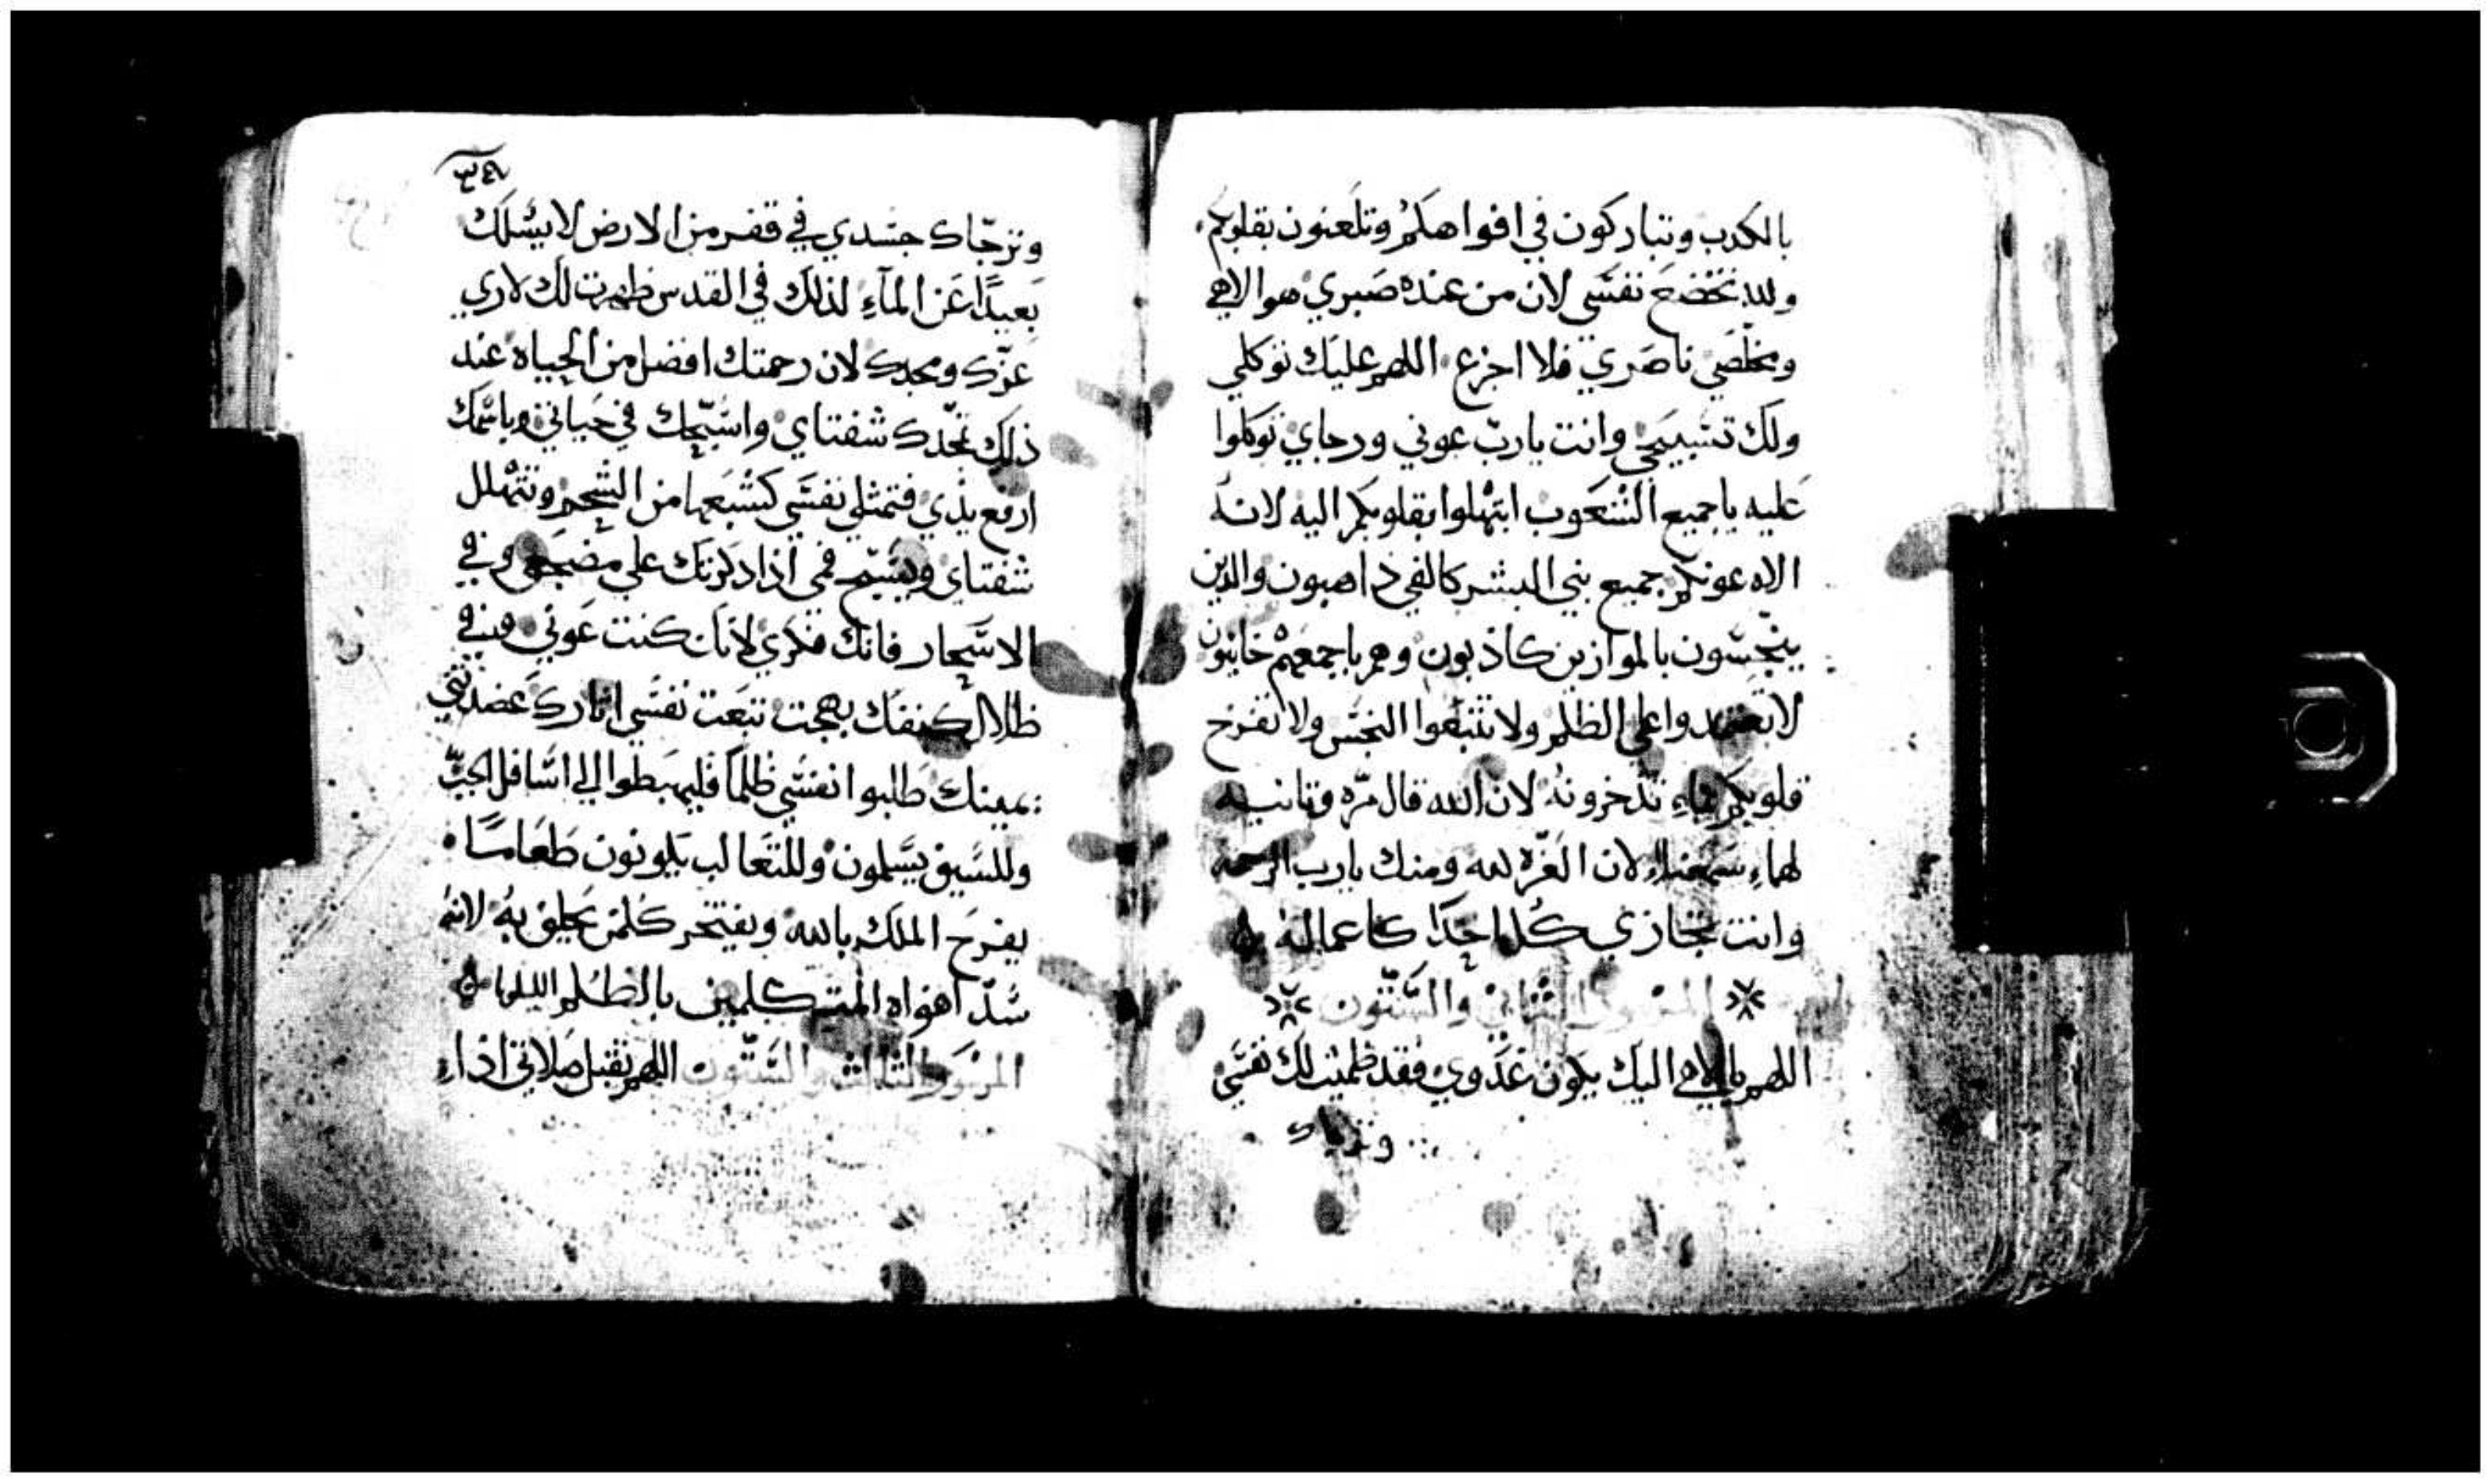 بالكدب وتباركون في افواهكم وتلعنون بقلوبكم
ولله تخضع نفسي لان من عنده صبري هو الاهي
ومخلصي ناصري فلا اجزع اللهم عليك توكلي
ولك تسبيحي وانت يا رب عوني ورجاي توكلوا
عليه يا جميع الشعوب ابتهلوا بقلوبكم اليه لانه
الاه عونكم جميع بني البشر كالفي ذاهبون والذين
ينجسون بالموازين كاذبون وهم باجمعهم خايبون
لا تعتمدوا على الظلم ولا تتبعوا النجس ولا تفرح
قلوبكم بماء تدخرونه لان الله قال مره وتانيه
لهاء سمعناء لان العزه لله ومنك يا رب الرحمه
وانت تجازي كل احدا كاعماله
المزمور الثاني والستون
اللهم يا الاهي اليك يكون غدوي فقد ظميت لك نفسي
وترجاك
٣٤٨
وترجاك جسدي في قفر من الارض لا يسلك
بعيدا عن الماء لذلك في القدس ظهرت لك لاري
عزك ومجدك لان رحمتك افضل من الحياه عند
ذلك تمجدك شفتاي واسبحك في حياتي وباسمك
ارفع يدي فتمتلي نفسي كشبعها من الشحم وتتهلل
شفتاي ويسبح فمي اذا ذكرتك علي مضجعي وفي
الاسحار فانك فكري لانك كنت عوني وفي
ظلال كنفك بهجت تبعت نفسي اثارك عضدتني
يمينك طلبوا نفسي ظلما فليهبطوا الي اسافل الجب
وللسيف يسلمون وللتعالب يكونون طعاما
يفرح الملك بالله ويفتخر كلمن يحلف به لانه
سد افواه المتكلمين بالظلم الليلويا
المزمور الثالث والستون اللهم تقبل صلاتي اذاء